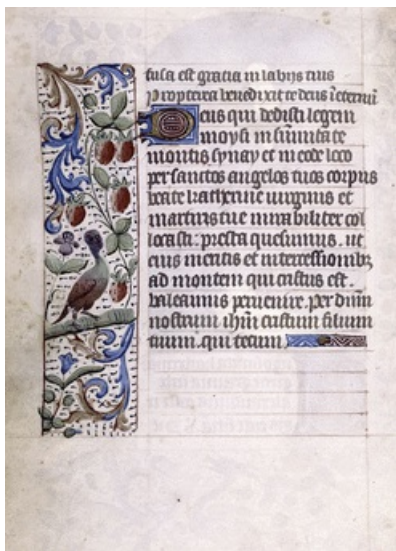 fusa est gracia in labijs tuis
Propterea benedixit te deus i eternu
Deus qui dedisti legem
moysi in sumitate
montis synay et in eode loco
per sanctos angelos tuos corpus
beate katherine uirginis et
martiris tue mirabiliter col
locasti: presta quesumus. ut
eius meritis et intercessionibz
ad montem qui cristus est.
valeamus peruenire. per dnm
nostrum ihm cristum filium
tuum. qui tecum